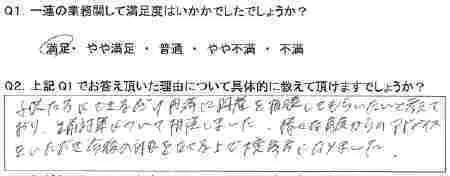 Q1. 一連の業務関して満足度はいかかでしたでしょうか？
満足・ やや満足 ・ 普通 ・ やや不満 ・ 不満
Q2. 上記Q1でお答え頂いた理由について具体的に教えて頂けますでしょうか？
子供たちにできるだけ円満に財産を相続してもらいたいと考えて
おり、生前対策について相談しました。様々な角度からのアドバイス
をいただき今後の計画を立てる上で大変参考になりました。